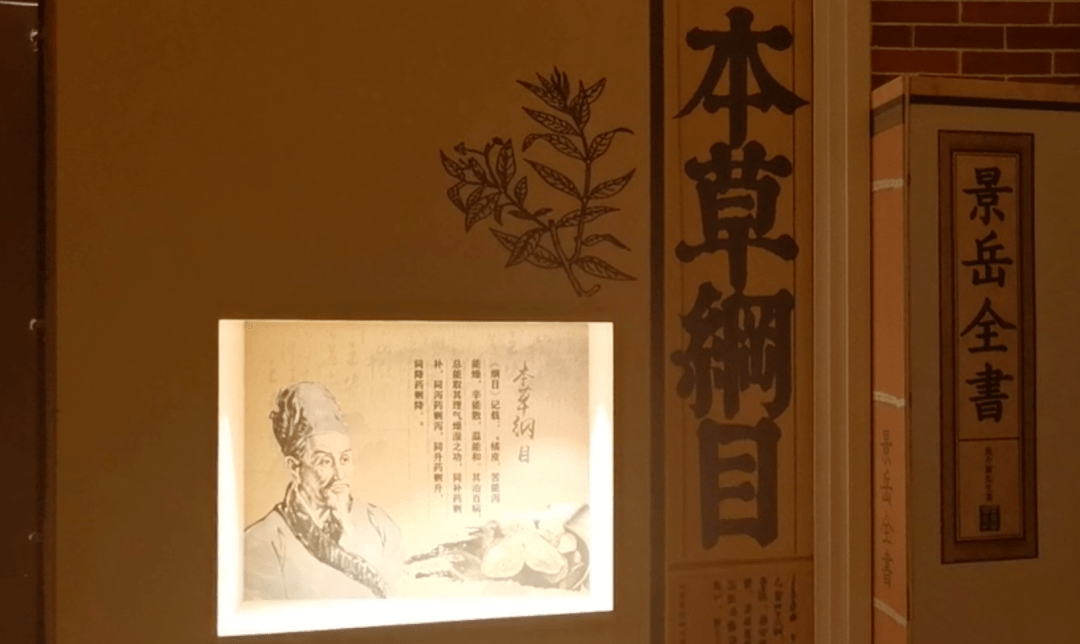 本草綱目
本草纲目
《纲目》记载:“橘皮，苦能泻
能燥，辛能散，温能和。其治百病，
总能取其理气燥湿之功。同补药则
补，同泻药则泻，同升药则升，
同降药则降。”
景岳全書
景岳全書